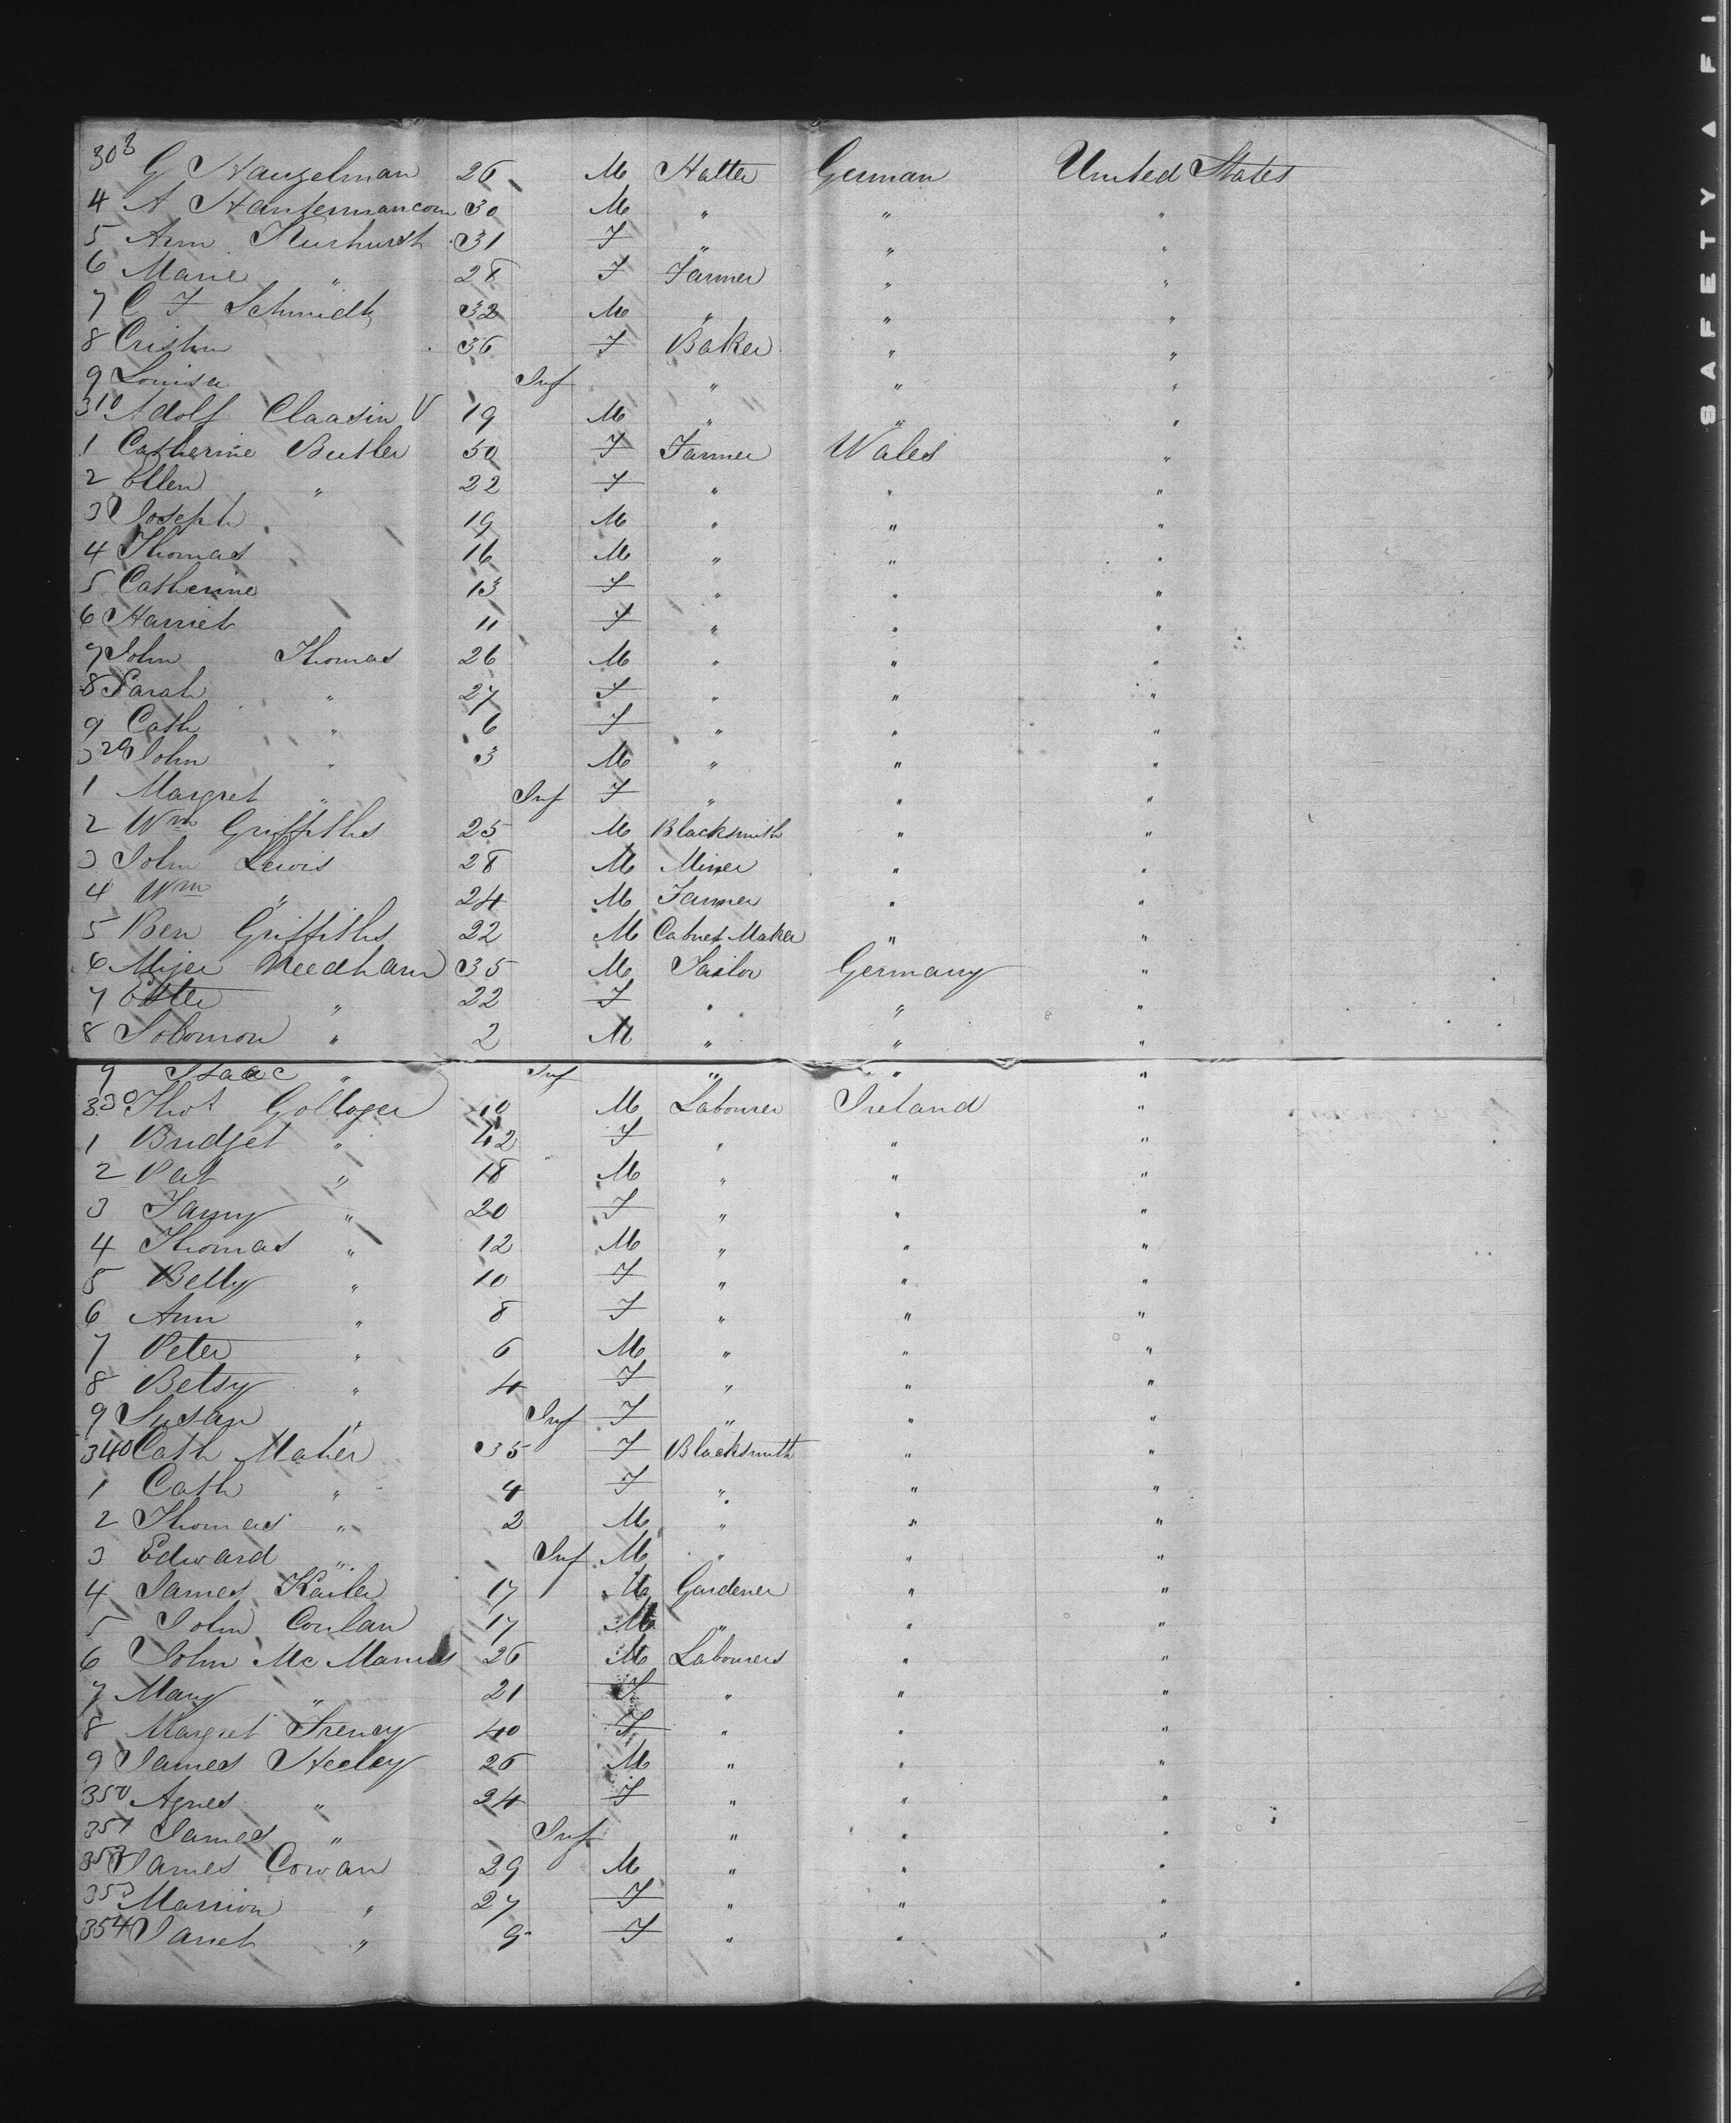 303 G Hauzelman 26 M Hatter German United States
4 A 30 M " " "
5 Ann 31 F " " "
6 Marie " 28 F Farmer " "
7 C F Schmidt 32 M " " "
8 Cristin 36 F Baker " "
9 Louisa Inf " " "
310 Adolf Claasin V 19 M " " "
1 Catherine Butler 50 F Farmer Wales "
2 Ellen " 22 F " " "
3 Joseph 19 M " " "
4 Thomas 16 M " " "
5 Catherine 13 F " " "
6 Harriet 11 F " " "
7 John Thomas 26 M " " "
8 Sarah " 27 F " " "
9 Cath " 6 F " " "
320 John " 3 M " " "
1 Margret " Inf F " " "
2 Wm Griffiths 25 M Blacksmith " "
3 John Lewis 28 M Miner " "
4 Wm " 24 M Farmer " "
5 Ben Griffiths 22 M Cabnet Maker " "
6 Mijer Needham 35 M Tailor Germany "
7 Ester " 22 F " " "
8 Solomon " 2 M " " "
9 Isaac " Inf " " "
330 Thos Gollager 40 M Labourer Ireland "
1 Bridget " 42 F " " "
2 Pat " 18 M " " "
3 Fanny " 20 F " " "
4 Thomas " 12 M " " "
5 Belly " 10 F " " "
6 Ann " 8 F " " "
7 Peter " 6 M " " "
8 Betsy " 4 F " " "
9 Susan " Inf F " " "
340 Cath Maher 35 F Blacksmith " "
1 Cath " 4 F " " "
2 Thomas " 2 M " " "
3 Edward " Inf M " " "
4 James 17 M Gardener " "
5 John Conlan 17 M " " "
6 John Mc Manus 26 M Labourers " "
7 Mary " 21 F " " "
8 Margret 40 F " " "
9 James Heeley 26 M " " "
350 Agnes " 24 F " " "
351 James " Inf " " "
352 James Cowan 29 M " " "
353 Marrion " 27 F " " "
354 Janet " 9 F " " "
SAFETY FI